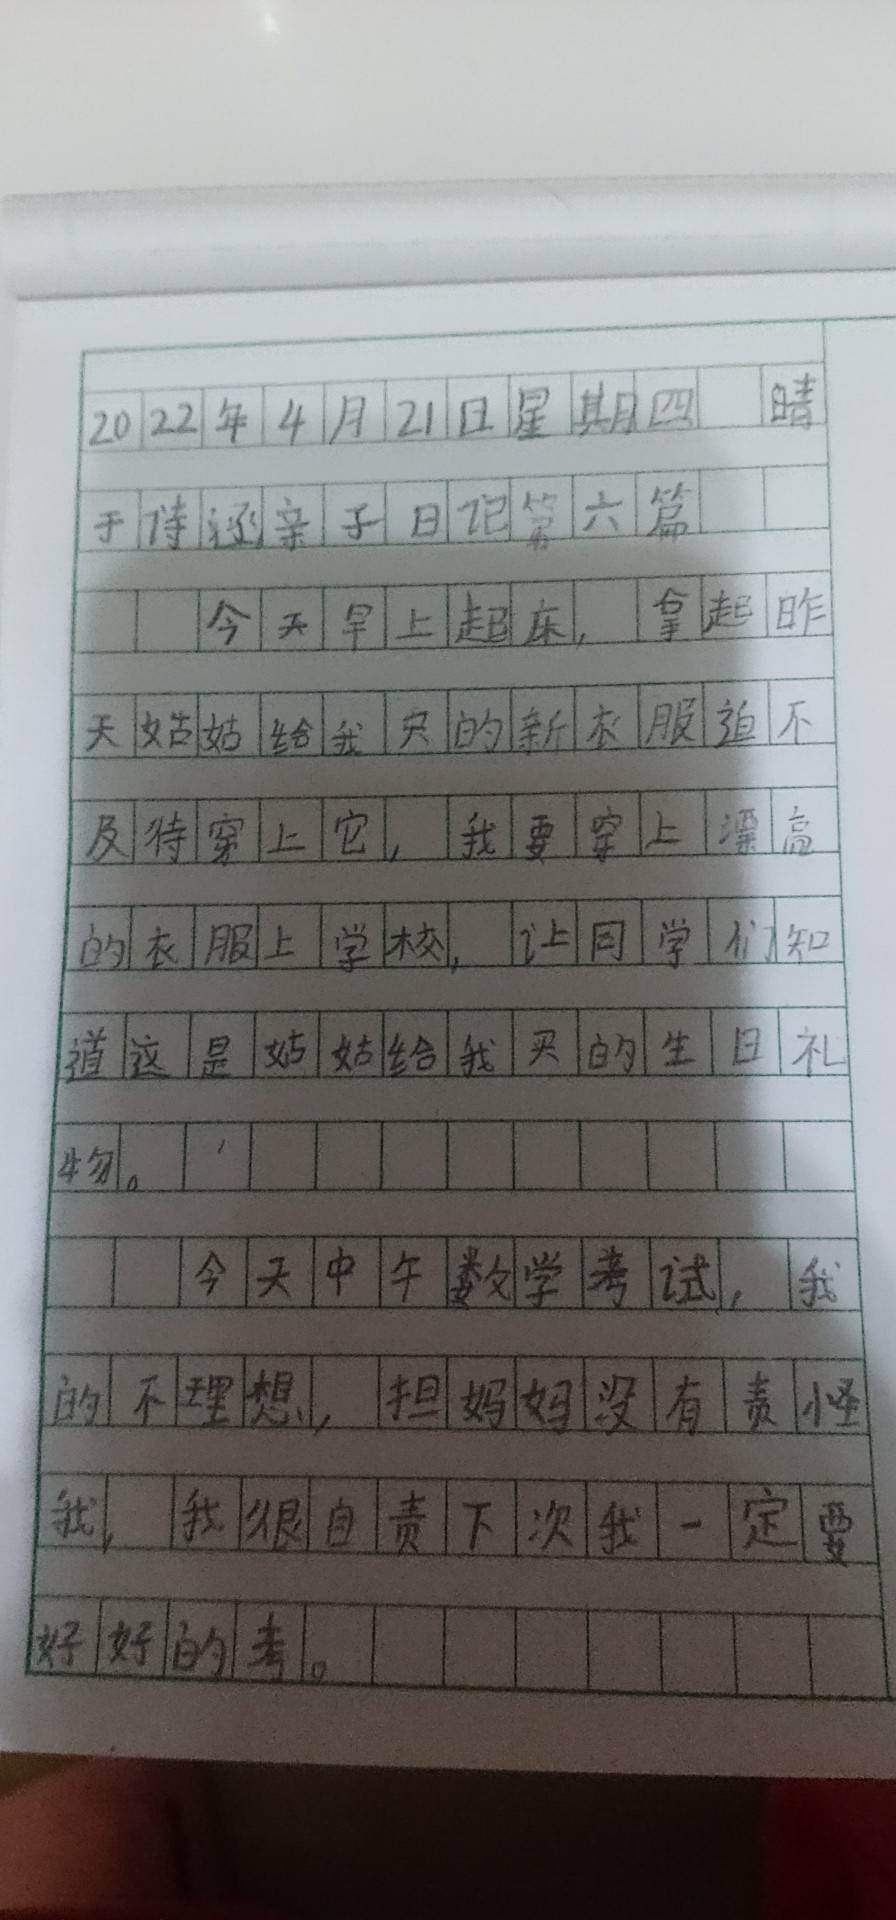 2022年4月21日星期四 晴
于诗涵亲子日记第六篇
今天早上起床，拿起昨
天姑姑给我买的新衣服迫不
及待穿上它，我要穿上漂高
的衣服上学校，让同学们知
道这是姑姑给我买的生日礼
物。
今天中午数学考试，我
的不理想，担妈妈没有责怪
我，我很自责下次我一定要
好好的考。